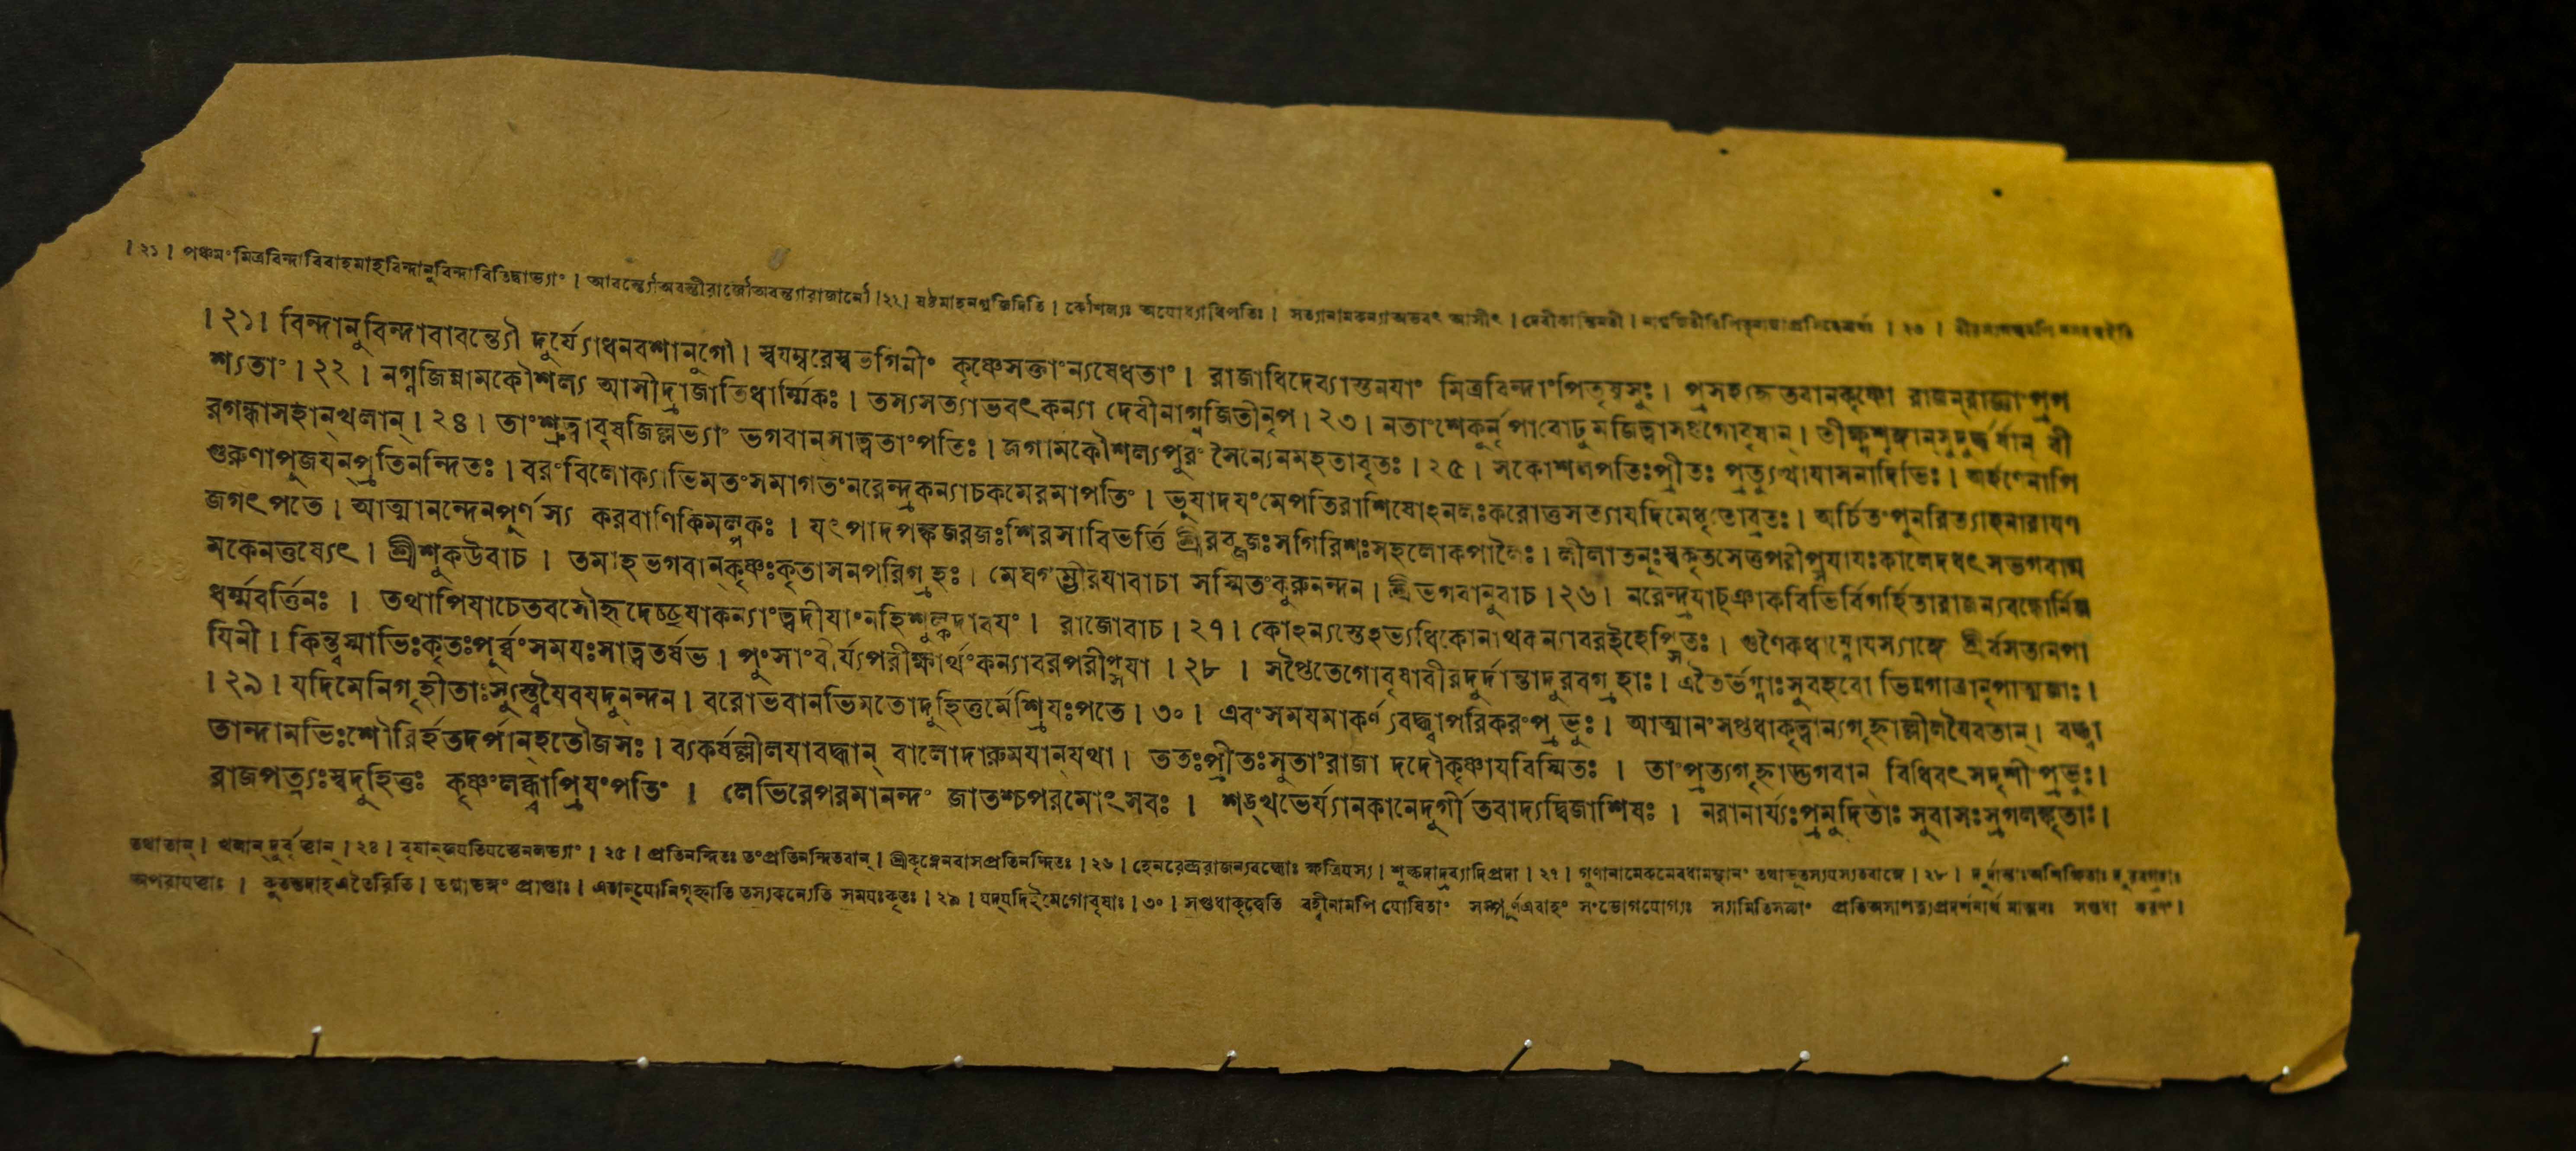 । ২১ । পঞ্চমং মিত্রবিন্দাবিবাহমাহবিন্দানুবিন্দাবিতিদ্বাভ্যাং । আবন্ত্যৌঅবন্তীরাজ্যেঅবন্ত্যারাজানৌ । ২২ । ষষ্ঠমাহনগ্নজিদিতি । কৌশল্যঃ অযোধ্যাধিপতিঃ । সত্যানামকন্যাঅভবৎ আসীৎ । দেবীকান্তিমতী ।
। ২১। বিন্দানুবিন্দাবাবন্ত্যৌ দুর্য্যোধনবশানুগৌ । স্বযম্বরেস্বভগিনীং কৃষ্ণেসক্তাংন্যষেধতাং । রাজাধিদেব্যাস্তনযাং মিত্রবিন্দাংপিতৃষ্বসুঃ । প্রসহ্যহৃতবানকৃষ্ণো রাজন্রাজ্ঞাংপ্রপ
শ্যতাং । ২২ । নগ্নজিন্নামকৌশল্য আসীদ্রাজাতিধার্ম্মিকঃ । তস্যসত্যাভবৎকন্যা দেবীনাগ্নজিতীনৃপ । ২৩ । নতাংশেকুর্নৃপাবোঢুমজিত্বাসপ্তগোবৃষান্ । তীক্ষ্ণশৃঙ্গান্সুদুর্দ্ধর্ষান্ বী
রগন্ধাসহান্খলান্ । ২৪ । তাংশ্রুত্বাবৃষজিল্লভ্যাং ভগবান্সাত্বতাংপতিঃ । জগামকৌশল্যপুরং সৈন্যেনমহতাবৃতঃ । ২৫ । সকোশলপতিঃপ্রীতঃ প্রত্যুত্থাযাসনাদিভিঃ । অর্হণেনাপি
গুরুণাপুজযন্প্রতিনন্দিতঃ । বরংবিলোক্যাভিমতংসমাগতংনরেন্দ্রকন্যাচকমেরমাপতিং । ভূযাদযংমেপতিরাশিষোঽনলঃকরোত্তুসত্যাযদিমেধৃতোব্রতঃ । অর্চিতংপুনরিত্যাহনারাযণ
জগৎপতে । আত্মানন্দেনপুর্ণস্য করবাণিকিমল্পকঃ । যৎপাদপঙ্কজরজঃশিরসাবিভর্ত্তি শ্রীরব্জজঃসগিরিশঃসহলোকপালৈঃ । লীলাতনুঃস্বকৃতসেত্তুপরীপ্সযাযঃকালেদধৎসভগবান্ম
মকেনত্তুষ্যেৎ । শ্রীশুকউবাচ । তমাহভগবান্কৃষ্ণঃকৃতাসনপরিগ্রহঃ । মেঘগম্ভীরযাবাচা সস্মিতংকুরুনন্দন । শ্রীভগবানুবাচ । ২৬ । নরেন্দ্রযাচ্ঞাকবিভির্বিগর্হিতারাজন্যবন্ধোর্নিজ
ধর্ম্মবর্ত্তিনঃ । তথাপিযাচেতবসৌহৃদেচ্ছযাকন্যাংত্বদীযাংনহিশুল্কদাবযং । রাজোবাচ । ২৭ । কোঽন্যস্তেঽভ্যধিকোনাথকন্যাবরইহেপ্সিতঃ । গুণৈকধাম্নোযস্যাঙ্গে শ্রীর্বসত্যনপা
যিনী । কিন্ত্বস্মাভিঃকৃতঃপূর্ব্বংসমযঃসাত্বতর্ষভ । পুংসাংবীর্য্যপরীক্ষার্থংকন্যাবরপরীপ্সযা । ২৮ । সপ্তৈতেগোবৃষাবীরদুর্দান্তাদুরবগ্রহাঃ । এতৈর্ভগ্নাঃসুবহবো ভিন্নগাত্রানৃপাত্মজাঃ ।
। ২৯ । যদিমেনিগৃহীতাঃস্যুস্ত্বযৈবযদুনন্দন । বরোভবানভিমতোদুহিত্তুর্মেশ্রিযঃপতে । ৩০ । এবংসমযমাকর্ণ্যবদ্ধ্বাপরিকরংপ্রভুঃ । আত্মানংসপ্তধাকৃত্বান্যগৃহ্নাল্লীলযৈবতান্ । বদ্ধ্বা
তান্দামভিঃশৌরির্হতদর্পান্হতৌজসঃ । ব্যকর্ষল্লীলযাবদ্ধান্ বালোদারুমযান্যথা । ততঃপ্রীতঃসুতাংরাজা দদৌকৃষ্ণাযবিস্মিতঃ । তাংপ্রত্যগৃহ্নাদ্ভগবান্ বিধিবৎসদৃশীংপ্রভুঃ ।
রাজপত্ন্যঃস্বদুহিত্তুঃ কৃষ্ণংলব্ধ্বাপ্রিযংপতিং । লেভিরেপরমানন্দং জাতশ্চপরমোৎসবঃ । শঙ্খভের্য্যানকানেদুর্গীতবাদ্যদ্বিজাশিষঃ । নরানার্য্যঃপ্রমুদিতাঃ সুবাসঃস্রগলঙ্কৃতাঃ ।
তথাতান্ । খলান্ দুর্বৃত্তান্ । ২৪ । বৃষান্জযতিযস্তেনলভ্যাং । ২৫ । প্রতিনন্দিতঃ তংপ্রতিনন্দিতবান্ । শ্রীকৃষ্ণেনবাসপ্রতিনন্দিতঃ । ২৬ । হেনরেন্দ্ররাজন্যবন্ধোঃ ক্ষত্রিযস্য । শুল্কদাদ্রব্যাদিপ্রদা । ২৭ । । ২৮ ।
। এতৈরিতি । প্রাপ্তাঃ । এতান্যোনিগৃহ্নাতি তস্যকন্যেতি সমযঃকৃতঃ । ২৯ । যদ্যদিইমেগোবৃষাঃ । ৩০ । সপ্তধাকৃত্বেতি বহ্বীনামপি যোষিতাং সম্পূর্ণএবাহং সংভোগযোগ্যঃ